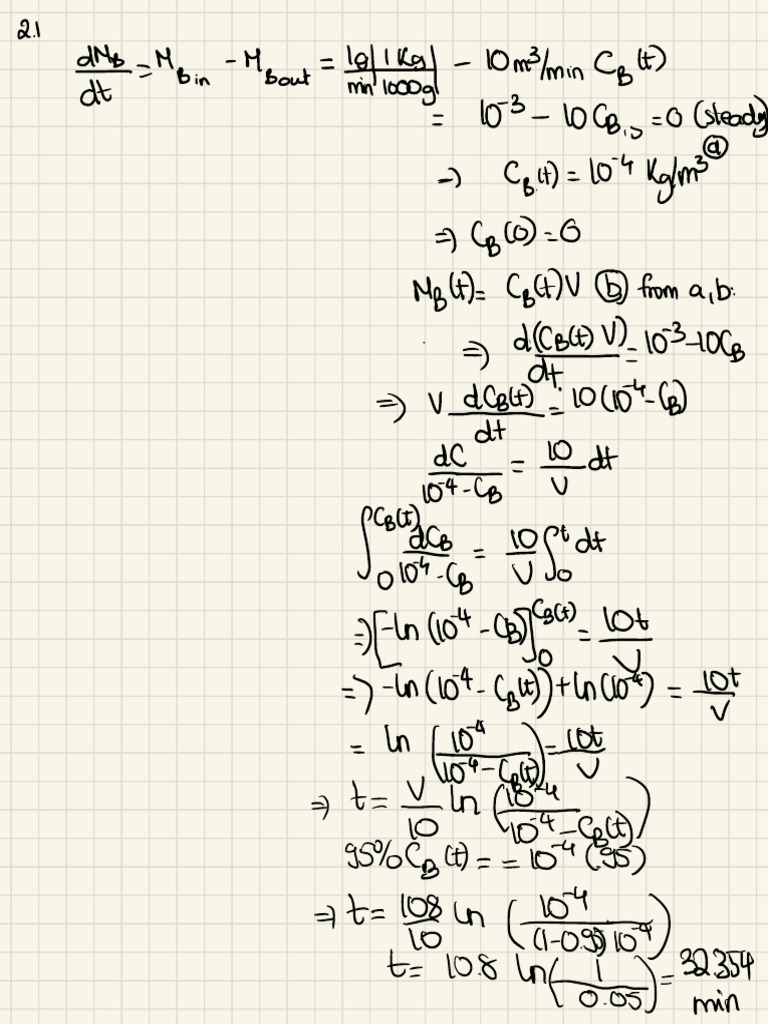 2.1
dM_B/dt = M_B in - M_B out = 1g/min | 1 Kg/1000g | - 10 m³/min C_B(t)
= 10⁻³ - 10 C_B,s = 0 (steady)
→ C_B(t) = 10⁻⁴ Kg/m³ ⓐ
⇒ C_B(0) = 0
M_B(t) = C_B(t)V ⓑ from a,b:
⇒ d(C_B(t) V)/dt = 10⁻³ - 10C_B
⇒ V dC_B(t)/dt = 10(10⁻⁴ - C_B)
dC/(10⁻⁴ - C_B) = 10/V dt
∫₀^{C_B(t)} dC_B/(10⁻⁴ - C_B) = 10/V ∫₀^t dt
⇒ [-ln(10⁻⁴ - C_B)]₀^{C_B(t)} = 10t/V
⇒ -ln(10⁻⁴ - C_B(t)) + ln(10⁻⁴) = 10t/V
= ln(10⁻⁴/(10⁻⁴ - C_B(t))) = 10t/V
⇒ t = V/10 ln(10⁻⁴/(10⁻⁴ - C_B(t)))
95% C_B(t) = = 10⁻⁴ (95)
⇒ t = 108/10 ln(10⁻⁴/((1-0.95)10⁻⁴))
t = 10.8 ln(1/0.05) = 32.354 min